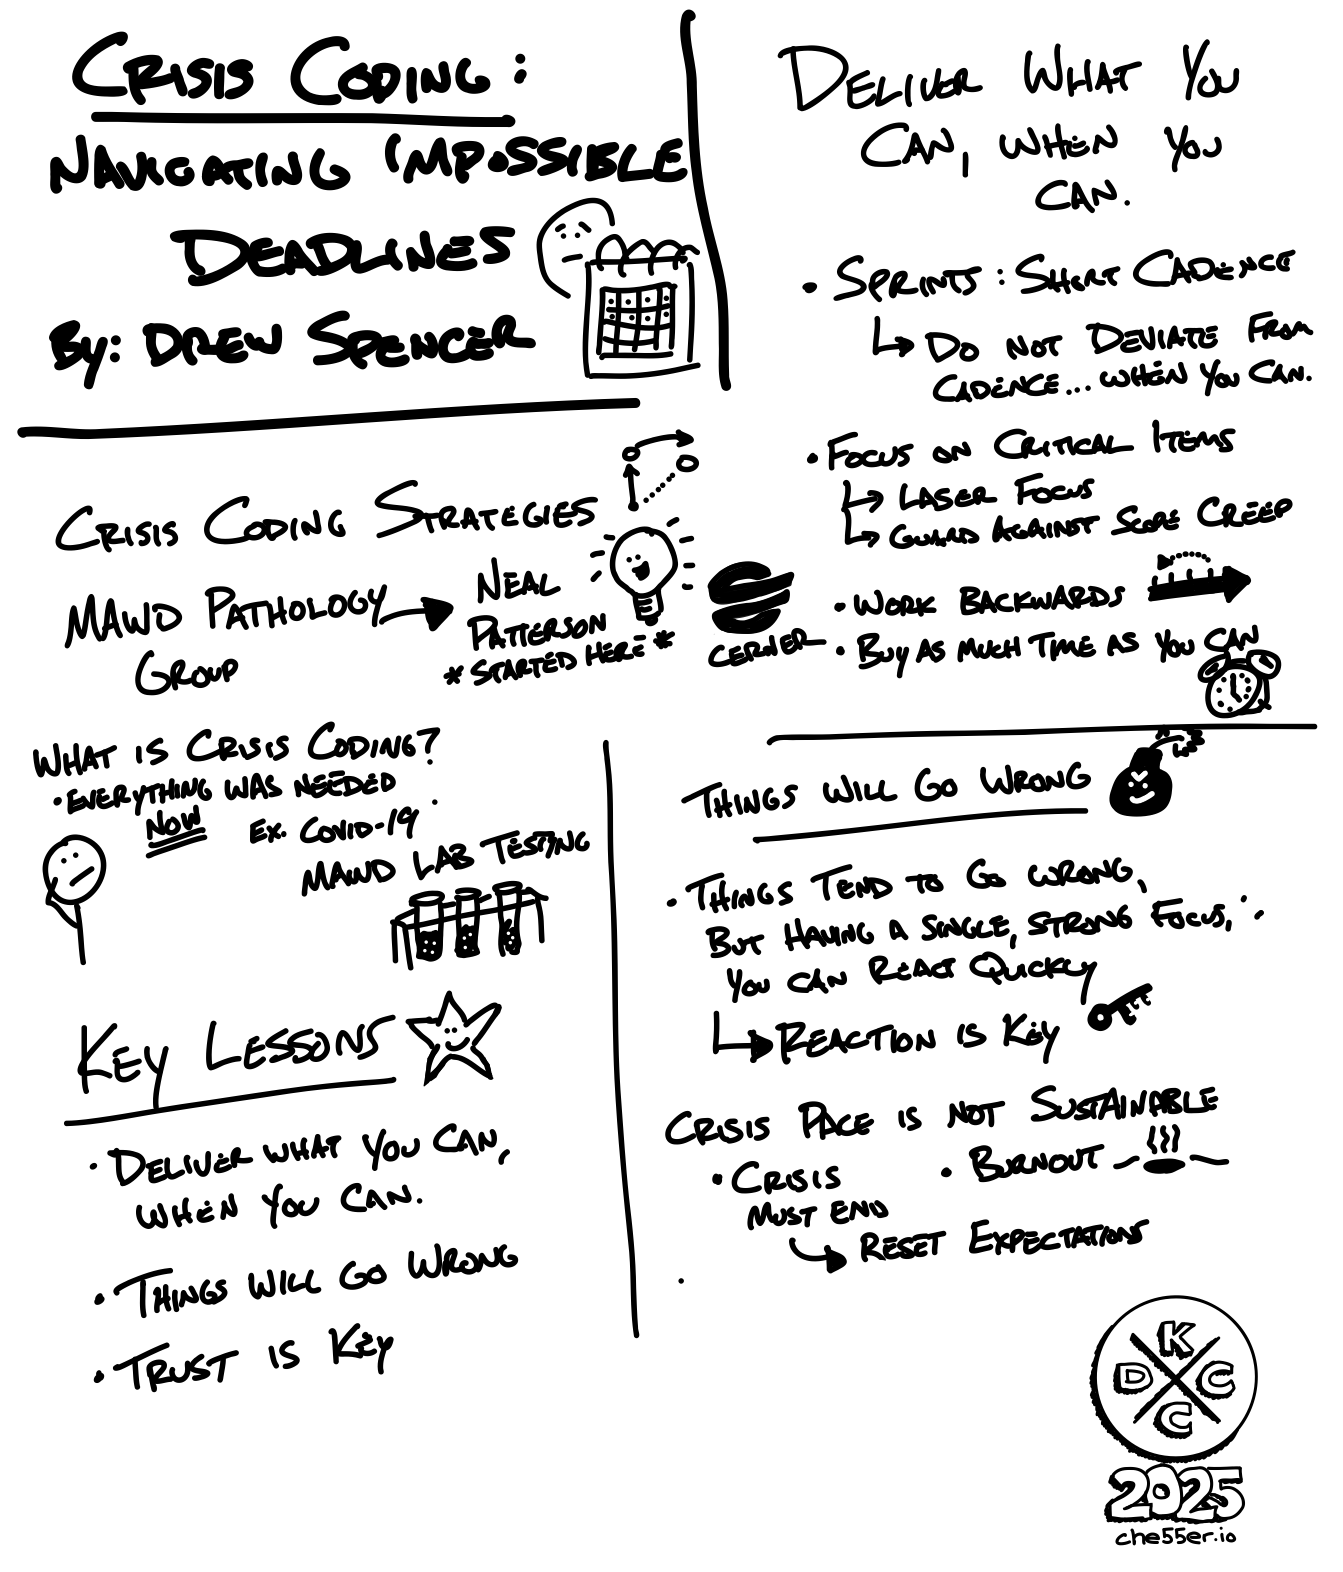 Crisis Coding:
Navigating Impossible
Deadlines
By: Drew Spencer
Crisis Coding Strategies
MAWD Pathology
Group
Neal
Patterson
* Started Here *
Cerner
What is Crisis Coding?
• Everything was needed
NOW
Ex. Covid-19
MAWD Lab Testing
Key Lessons
• Deliver what you can,
when you can.
• Things will go wrong
• Trust is key
Deliver What You
Can, When You
Can.
• Sprints: Short Cadence
Do not deviate from
cadence... when you can.
• Focus on Critical Items
Laser Focus
Guard Against Scope Creep
• Work Backwards
• Buy as much time as you can
Things will go wrong
• Things tend to go wrong,
But having a single, strong focus,
you can react quickly
Reaction is key
Crisis Pace is not Sustainable
• Crisis
must end
Reset Expectations
• Burnout
K
D C
C
2025
che55er.io